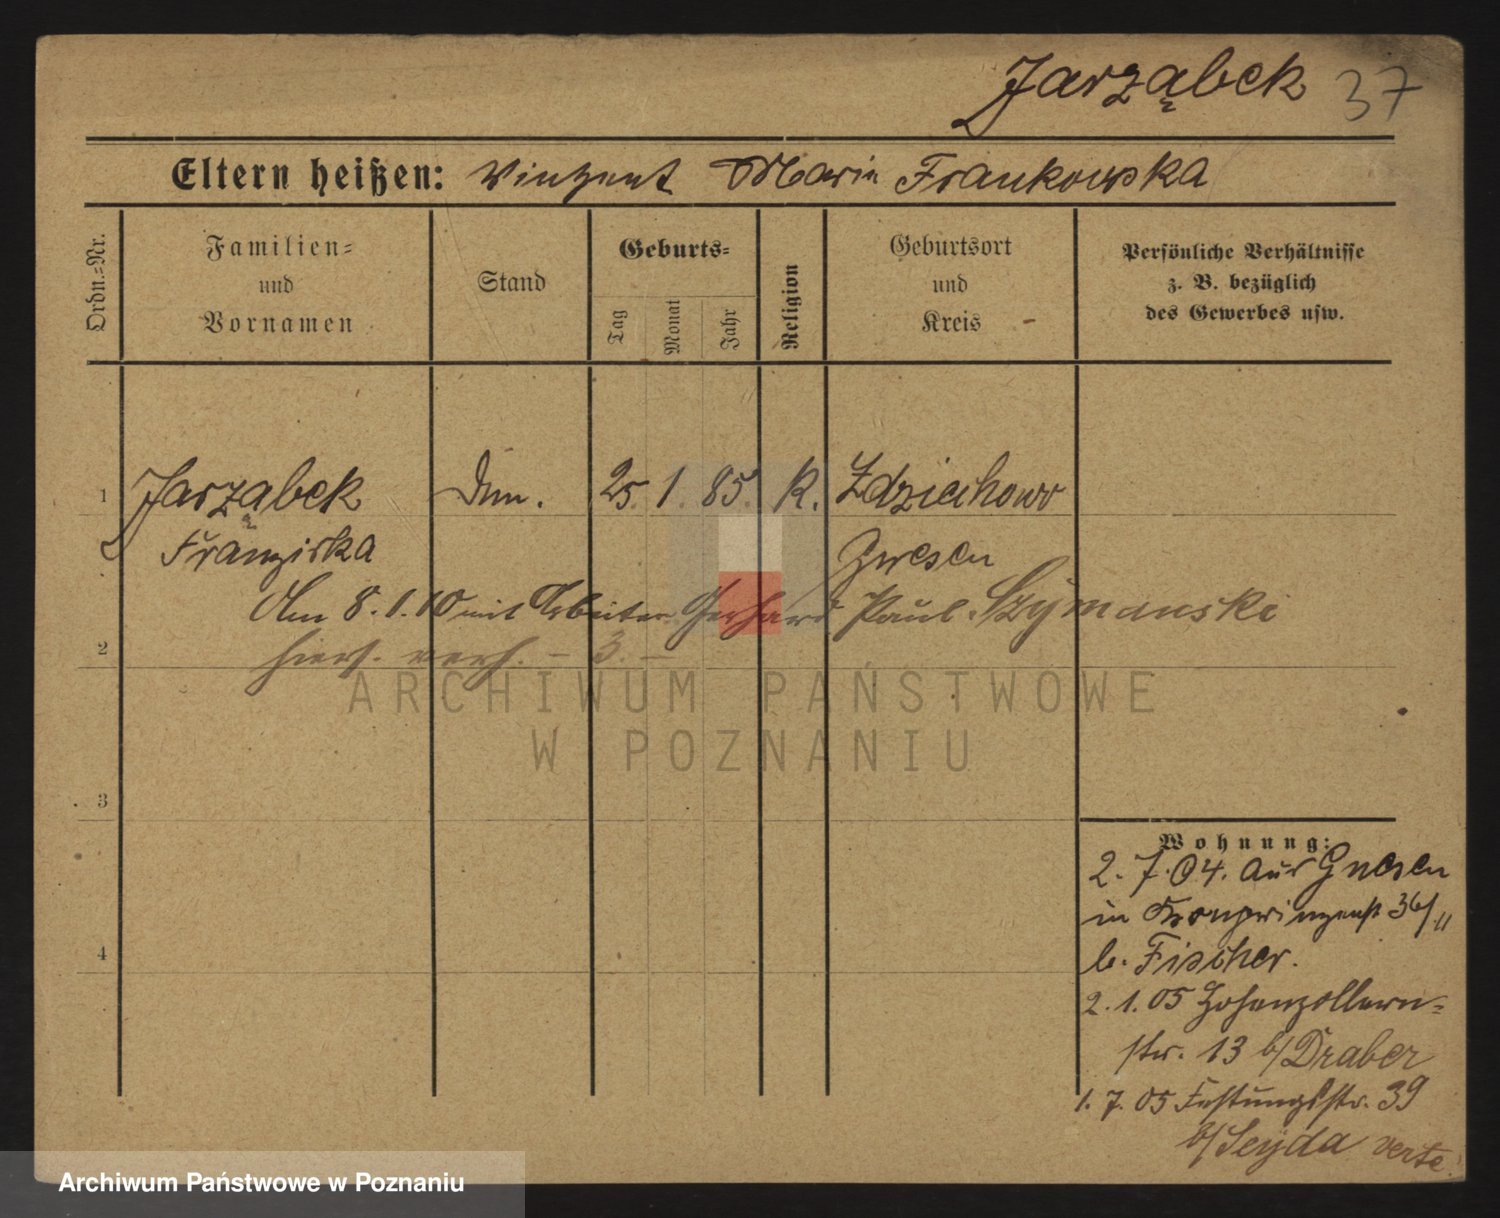 Jarząbek 37
Eltern heißen: Vinzent Marie Frankowska
Ordn.=Nr.
Familien=
und
Vornamen
Stand
Geburts=
Tag
Monat
Jahr
Religion
Geburtsort
und
Kreis
Persönliche Verhältnisse
z. B. bezüglich
des Gewerbes usw.
1 Jarząbek 25. 1. 85. K. Zdziechowo
Franziska Gnesen
Am 8. 1. 10 mit Arbeiter Gerhard Paul Szymanski
2 hiers. verh. – 3. –
3
4
Wohnung:
2. 7. 04. aus Gnesen
in Kronprinzenst 36/II
b. Fischer.
2. 1. 05 Hohenzollern=
str. 13 b/Draber
1. 7. 05 Festungsstr. 39
b/Seyda verte
ARCHIWUM PAŃSTWOWE
W POZNANIU
Archiwum Państwowe w Poznaniu